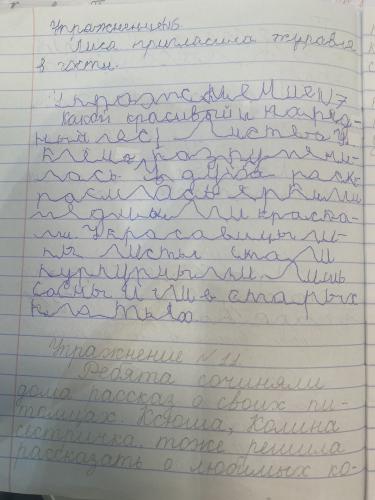 Упражнение №6.
Лиса пригласила журавля
в гости.
Упражнение №7
Какой красивый и наряд-
ный лес! Листва у
клёна разрумяни-
лась. У дуба раск-
расилась яркими
медными краска-
ми. У красавицы ли-
пы листы стали
пурпурными. Лишь
сосны и ели в старых
платьях
Упражнение №11.
Ребята сочиняли
дома рассказ о своих пи-
томцах. Ксюша, Колина
сестричка, тоже решила
рассказать о любимых ко-